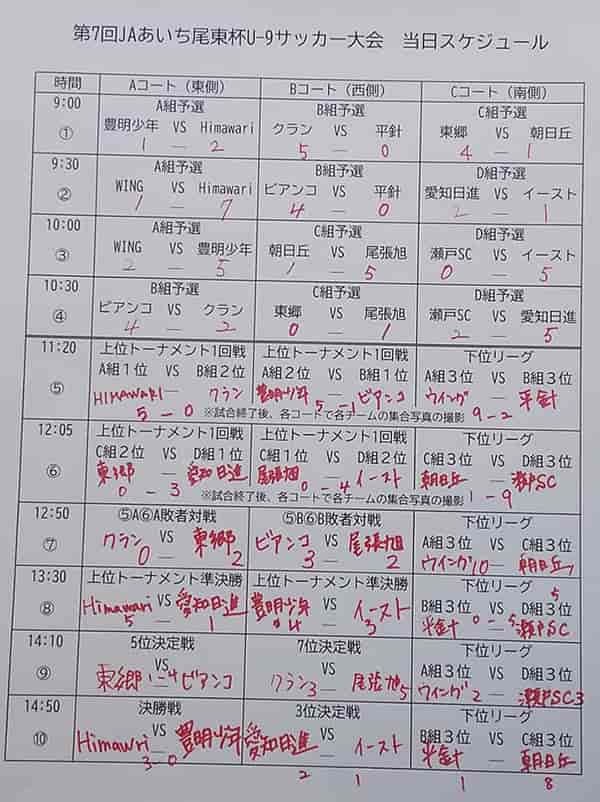 第7回JAあいち尾東杯U-9サッカー大会 当日スケジュール
時間 Aコート（東側） Bコート（西側） Cコート（南側）
9:00 A組予選 B組予選 C組予選
① 豊明少年 VS Himawari クラン VS 平針 東郷 VS 朝日丘
1 — 2 5 — 0 4 — 1
9:30 A組予選 B組予選 D組予選
② WING VS Himawari ビアンコ VS 平針 愛知日進 VS イースト
1 — 7 4 — 0 2 — 1
10:00 A組予選 C組予選 D組予選
③ WING VS 豊明少年 朝日丘 VS 尾張旭 瀬戸SC VS イースト
2 — 5 1 — 5 0 — 5
10:30 B組予選 C組予選 D組予選
④ ビアンコ VS クラン 東郷 VS 尾張旭 瀬戸SC VS 愛知日進
4 — 2 0 — 1 2 — 5
11:20 上位トーナメント1回戦 上位トーナメント1回戦 下位リーグ
⑤ A組1位 VS B組2位 A組2位 VS B組1位 A組3位 VS B組3位
HIMAWARI — クラン 豊明少年 — ビアンコ ウイング — 平針
5 — 0 5 — 1 9 — 2
※試合終了後、各コートで各チームの集合写真の撮影
12:05 上位トーナメント1回戦 上位トーナメント1回戦 下位リーグ
⑥ C組2位 VS D組1位 C組1位 VS D組2位 C組3位 VS D組3位
東郷 — 愛知日進 尾張旭 — イースト 朝日丘 — 瀬戸SC
0 — 3 0 — 4 1 — 9
※試合終了後、各コートで各チームの集合写真の撮影
12:50 ⑤A⑥A敗者対戦 ⑤B⑥B敗者対戦 下位リーグ
⑦ クラン VS 東郷 ビアンコ VS 尾張旭 A組3位 VS C組3位
0 — 2 3 — 2 ウイング 10 — 朝日丘
13:30 上位トーナメント準決勝 上位トーナメント準決勝 下位リーグ
⑧ Himawari VS 愛知日進 豊明少年 VS イースト B組3位 VS D組3位
5 — 1 4 — 3 平針 0 — 5 瀬戸SC
14:10 5位決定戦 7位決定戦 下位リーグ
⑨ VS VS A組3位 VS D組3位
東郷 1-4 ビアンコ クラン 3 尾張旭 5 ウイング 2 — 瀬戸SC 3
14:50 決勝戦 3位決定戦 下位リーグ
⑩ VS VS B組3位 VS C組3位
Himawri 豊明少年 愛知日進 — イースト 平針 — 朝日丘
3-0 2 1 1 8